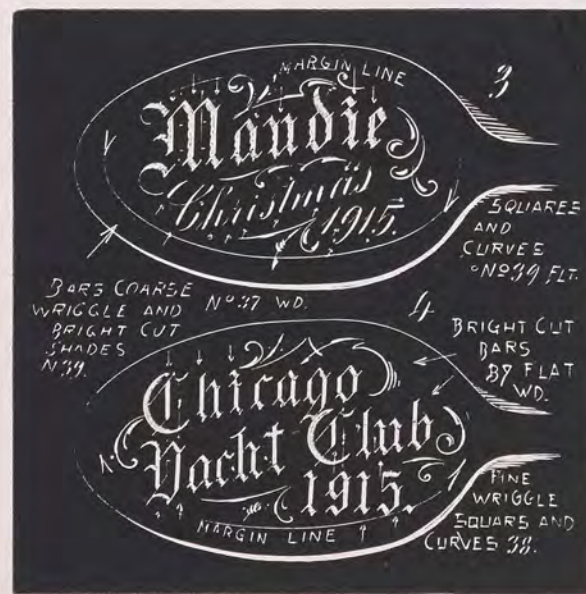 MARGIN LINE
3
Maudie
Christmas
1915.
SQUARES
AND
CURVES
No 39 FLT.
BARS COARSE
WRIGGLE AND
BRIGHT CUT
SHADES
No 39.
No 37 WD.
4
BRIGHT CUT
BARS
BY FLAT
WD.
Chicago
Yacht Club
1915.
MARGIN LINE
FINE
WRIGGLE
SQUARS AND
CURVES 38.